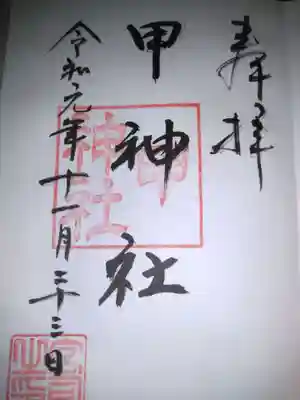 奉拝
甲神社
令和元年十一月二十三日
甲神社